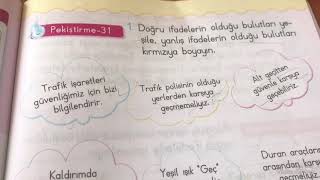 Pekiştirme-31
1. Doğru ifadelerin olduğu bulutları ye-
şile, yanlış ifadelerin olduğu bulutları
kırmızıya boyayın.
Trafik işaretleri
güvenliğimiz için bizi
bilgilendirir.
Trafik polisinin olduğu
yerlerden karşıya
geçmemeliyiz.
Alt geçitten
güvenle karşıya
geçebiliriz.
Kaldırımda
Yeşil ışık "Geç"
Duran araçların
arasından karşıya
geçmemeliyiz